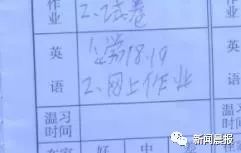 作
业
2、试卷
英
语
1、学案18.19
2、网上作业
温习
时间
好
中
新闻晨报